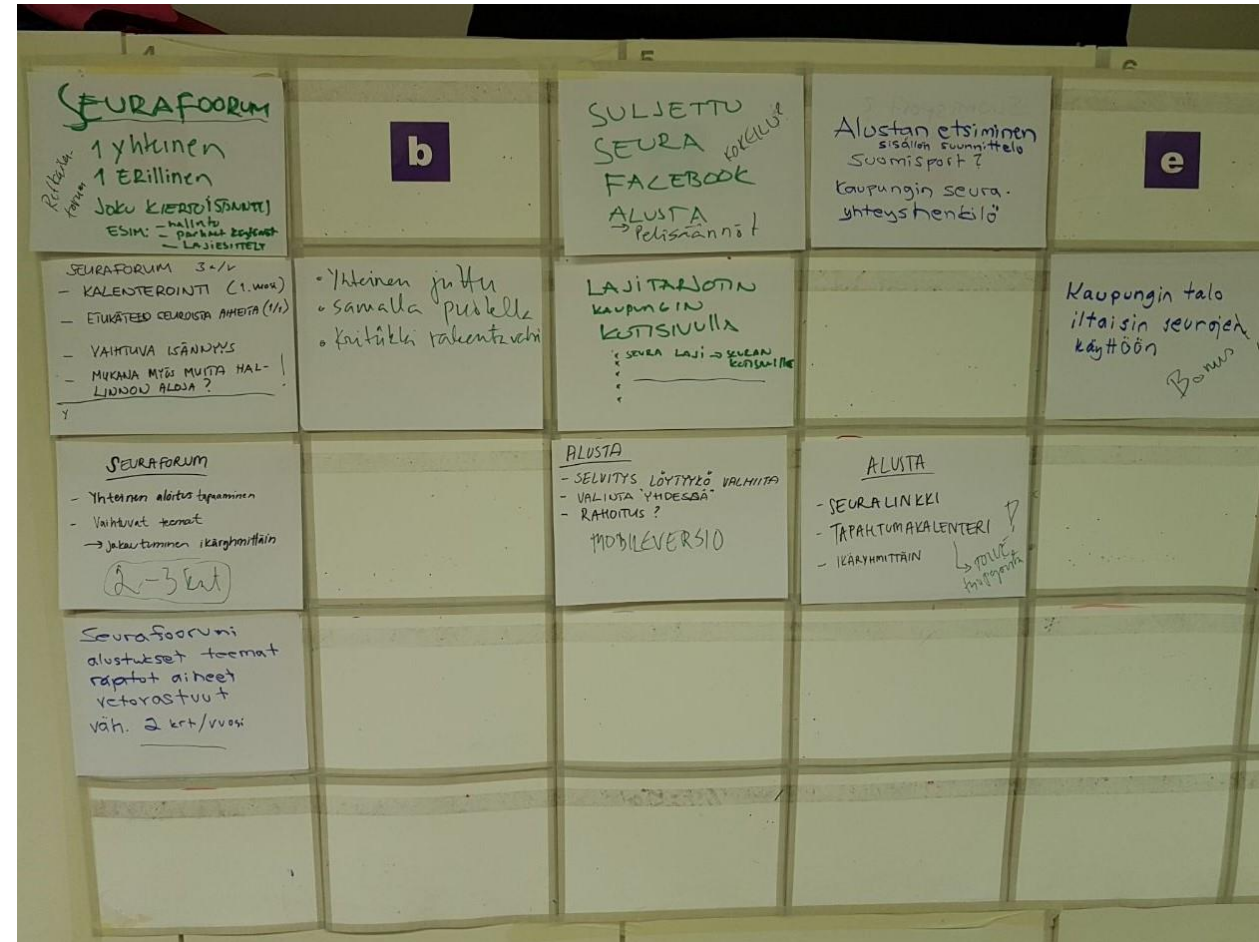 4
5
6
SEURAFOORUM
1 yhteinen
1 ERillinen
JOKU KIERTOISÄNNYYS
ESIM: - hallinto
- parhaat käytännöt
- LAJIESITTELY
b
SULJETTU
SEURA
FACEBOOK
KOKEILU?
ALUSTA
→ Pelisäännöt
Alustan etsiminen
sisällön suunnittelo
Suomisport?
Kaupungin seura-
yhteyshenkilö
e
SEURAFORUM 3x/v
- KALENTEROINTI (1.
- ETUKÄTEEN SEUROISTA AIHEITA
- VAIHTUVA ISÄNNYYS
- MUKANA MYÖS MUITA HAL-
LINNON ALOJA? !
• Yhteinen juttu
• samalla puolella
• kritiikki rakentavasti
LAJITARJOTIN
KAUPUNGIN
KOTISIVULLA
• SEURA LAJI → SEURAN
KOTISIVUILLE
Kaupungin talo
iltaisin seurojen
käyttöön
Bonus
SEURAFORUM
- Yhteinen aloitus tapaaminen
- Vaihtuvat teemat
→ jakautuminen ikäryhmittäin
2-3 krt
ALUSTA
- SELVITYS LÖYTYYKÖ VALMIITA
- VALINTA "YHDESSÄ"
- RAHOITUS?
MOBIILEVERSIO
ALUSTA
- SEURALINKKI
- TAPAHTUMAKALENTERI !
- IKÄRYHMITTÄIN
Seurafoorumi
alustukset teemat
rajatot aiheet
vetovastuut
väh. 2 krt/vuosi